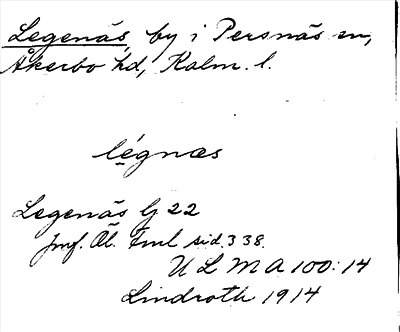 Legenäs, by i Persnäs sn,
Åkerbo hd, Kalm. l.
légnæs
Legenäs G 22
Jmf. Öl. Fml sid. 338.
ULMA 100:14
Lindroth 1914